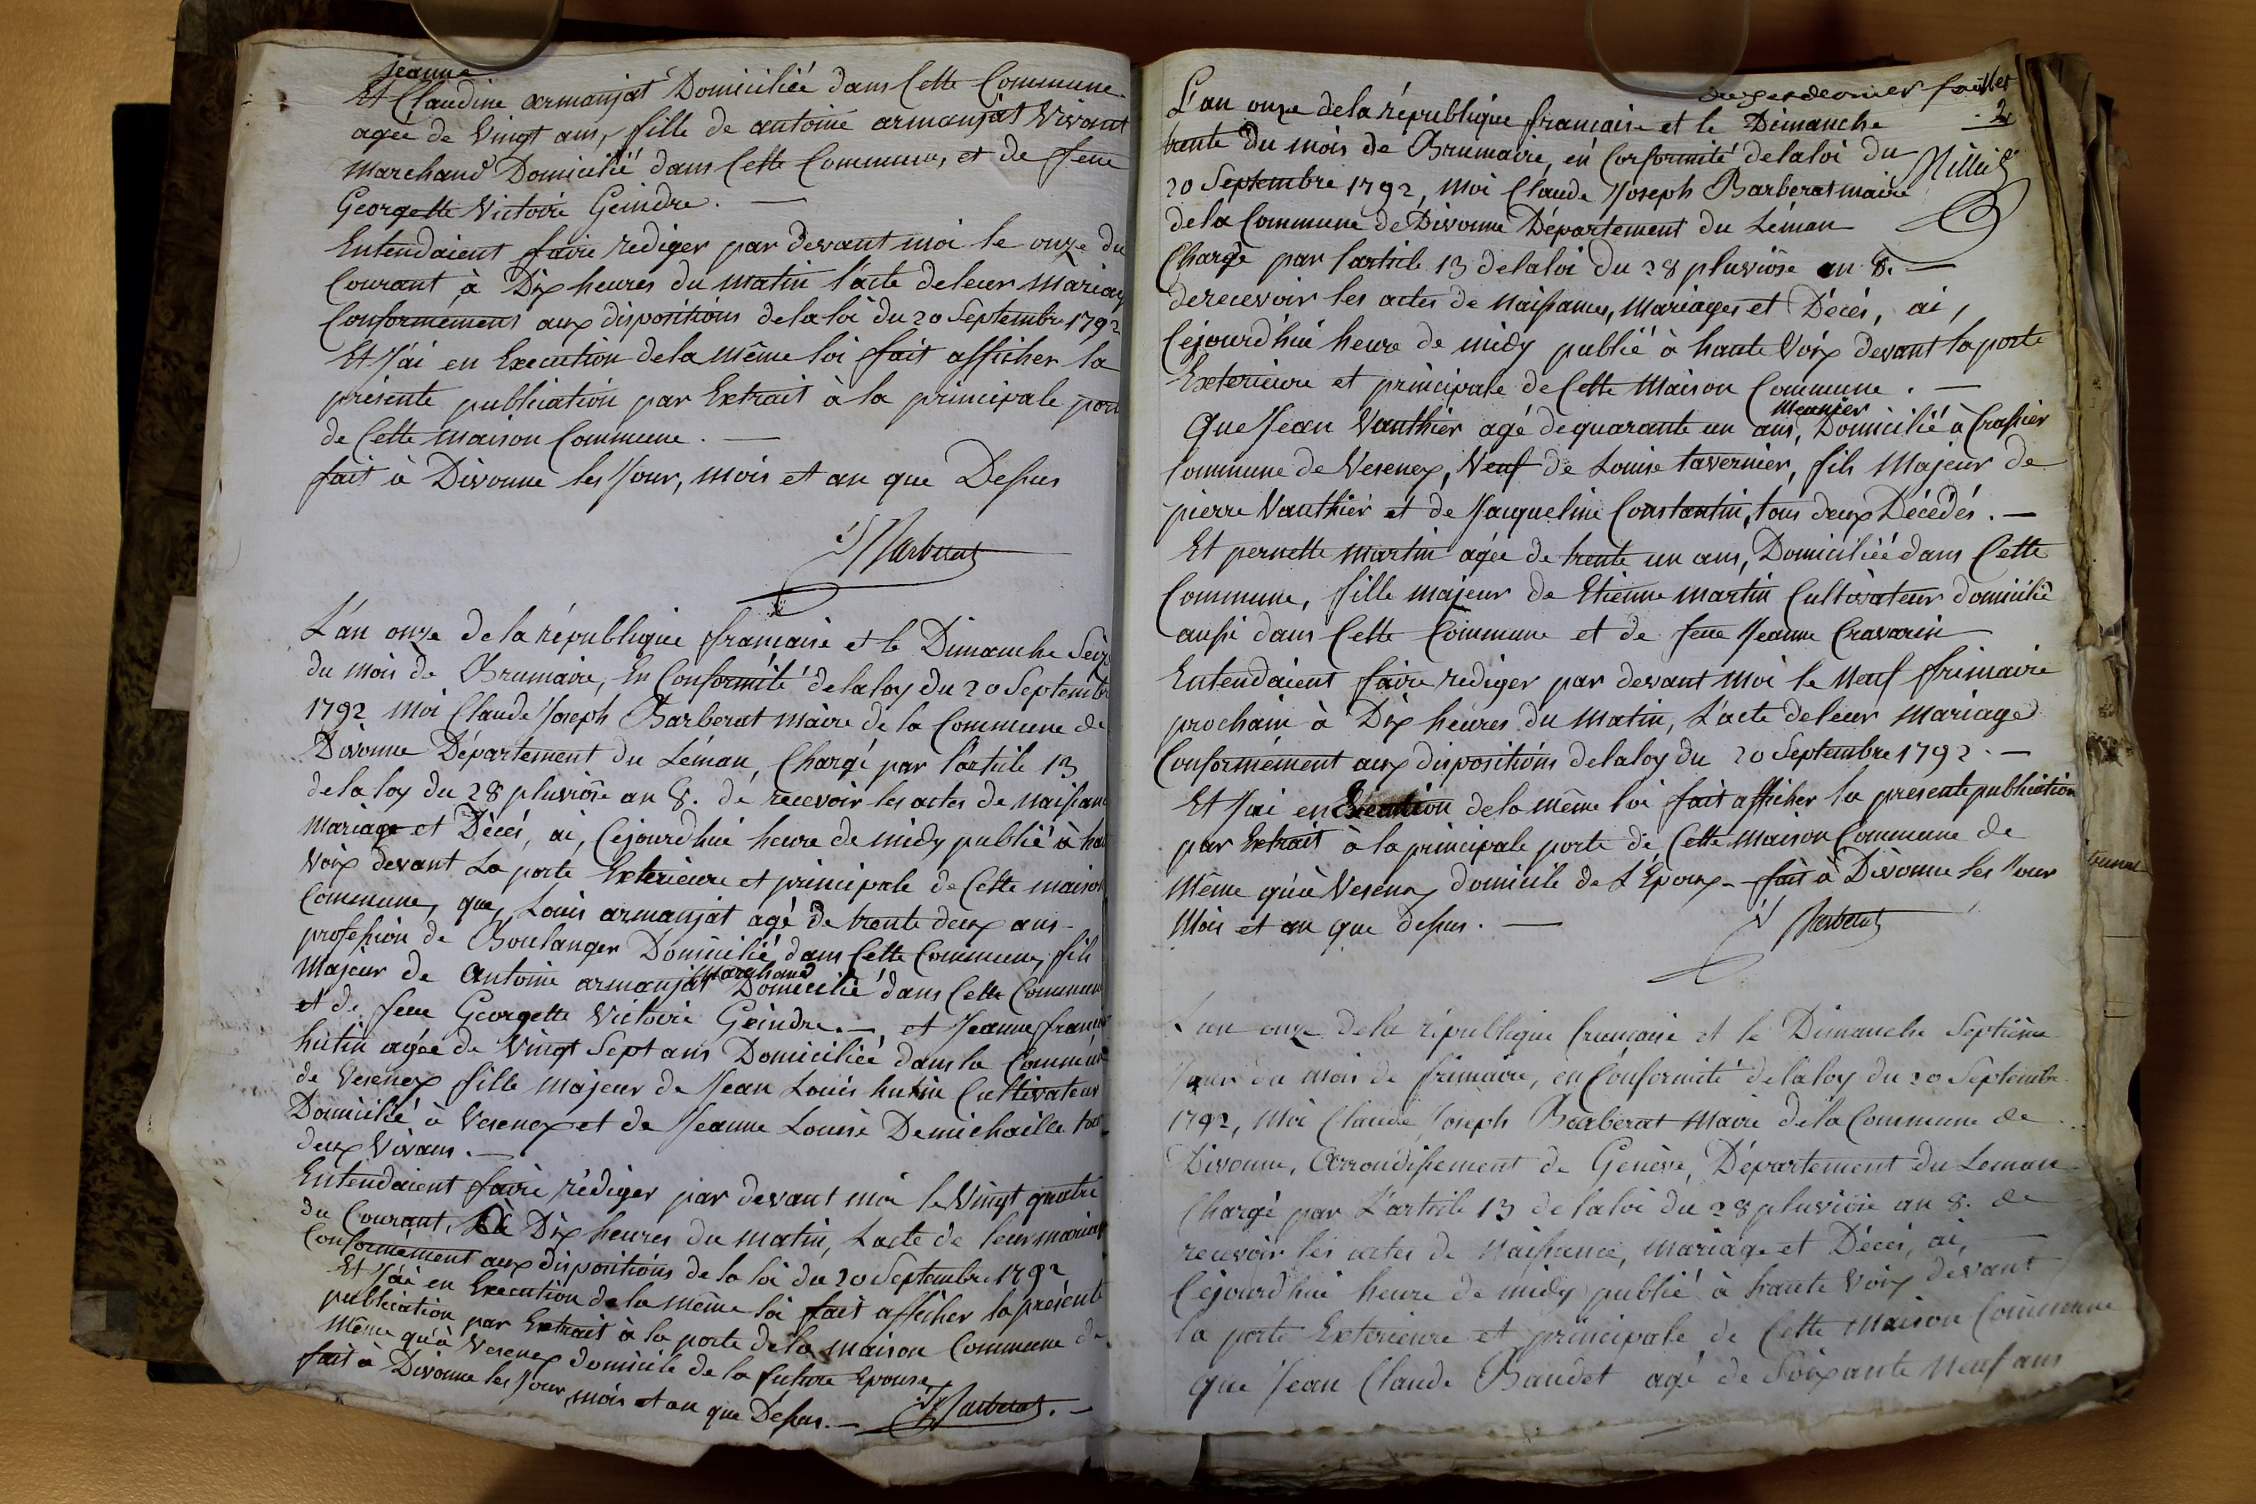 jeanne
Et Claudine armanjat Domiciliée dans Cette Commune
agée de Vingt ans, fille de antoine armanjat Vivant
marchand Domicilié dans Cette Commune, et de feue
Georgette Victoire Geindre. —
Entendaient faire rediger par devant moi le onze du
Courant à Dix heures du matin l'acte de leur mariage
Conformement aux dispositions de la loi du 20 Septembre 1792
Et J'ai en Execution de la même loi fait afficher la
présente publication par Extrait à la principale porte
de Cette maison Commune. —
fait à Divonne les Jour, mois et an que Dessus
Barberat
L'an onze de la république francaise et le Dimanche Seize
du mois de Brumaire, En Conformité de la loy du 20 Septembre
1792 Moi Claude Joseph Barberat maire de la Commune de
Divonne Département du Léman, Chargé par l'article 13
de la loy du 28 pluviôse an 8. de recevoir les actes de naissance
mariage et Décés, ai, Cejourd'hui heure de midy publié à haute
Voix devant La porte Exterieure et principale de Cette maison
Commune, que Louis armanjat agé de trente deux ans
profession de Boulanger Domicilié dans Cette Commune, fils
marchand
majeur de antoine armanjat Domicilié dans Cette Commune
et de feue Georgette Victoire Geindre. —, et Jeanne
hutin agée de Vingt Sept ans Domiciliée dans la Commune
de Vesenex fille majeur de Jean Louis hutin Cultivateur
Domicilié à Vesenex et de Jeanne Louise Demichaille tous
deux Vivans. —
Entendaient faire rédiger par devant moi le Vingt quatre
du Courant, à Dix heures du matin, L'acte de leur mariage
Conformement aux dispositions de la loi du 20 Septembre 1792
Et J'ai en Execution de la même loi fait afficher la présente
publication par Extrait à la porte de la maison Commune de
même qu'à Vesenex domicile de la future Epouse
fait à Divonne les Jour, mois et an que Dessus. — Barberat. —
dernier feuillet
2
L'an onze de la république francaise et le Dimanche
trente du mois de Brumaire, en Conformité de la loi du
20 Septembre 1792, Moi Claude Joseph Barberat maire
de la Commune de Divonne Département du Léman
Chargé par l'article 13 de la loi du 28 pluviôse an 8. —
de recevoir les actes de Naissances, Mariages et Décés, ai,
Cejourd'hui heure de midy publié à haute Voix devant la porte
Exterieure et principale de Cette Maison Commune. —
meunier
Que Jean Vauthier agé de quarante un ans, Domicilié à Crassier
Commune de Vesenex, Veuf de Louise tavernier, fils Majeur de
pierre Vauthier et de Jacqueline Constantin, tous deux Décédés. —
Et pernette martin agée de trente un ans, Domiciliée dans Cette
Commune, fille majeur de Etienne martin Cultivateur domicilié
aussi dans Cette Commune et de feue Jeanne Cravarin
Entendaient faire rediger par devant moi le Neuf frimaire
prochain à Dix heures du matin, L'acte de leur Mariage
Conformément aux dispositions de la loy du 20 Septembre 1792. —
Et J'ai en Execution de la même loi fait afficher la presente publication
par Extrait à la principale porte de Cette Maison Commune de
Même qu'à Vesenex domicile de L'Epoux - fait à Divonne les Jour
Mois et an que dessus. —
Barberat
L'an onze de la république francaise et le Dimanche Septième
Jour du mois de frimaire, en Conformité de la loy du 20 Septembre
1792, Moi Claude Joseph Barberat Maire de la Commune de
Divonne, Arrondissement de Genève, Département du Leman
Chargé par L'article 13 de la loi du 28 pluviôse an 8. de
recevoir les actes de Naissance, mariage et Décés, ai, —
Cejourd'hui heure de midy publié à haute Voix devant
la porte Exterieure et principale de Cette Maison Commune
que Jean Claude Baudet agé de Soixante Neuf ans